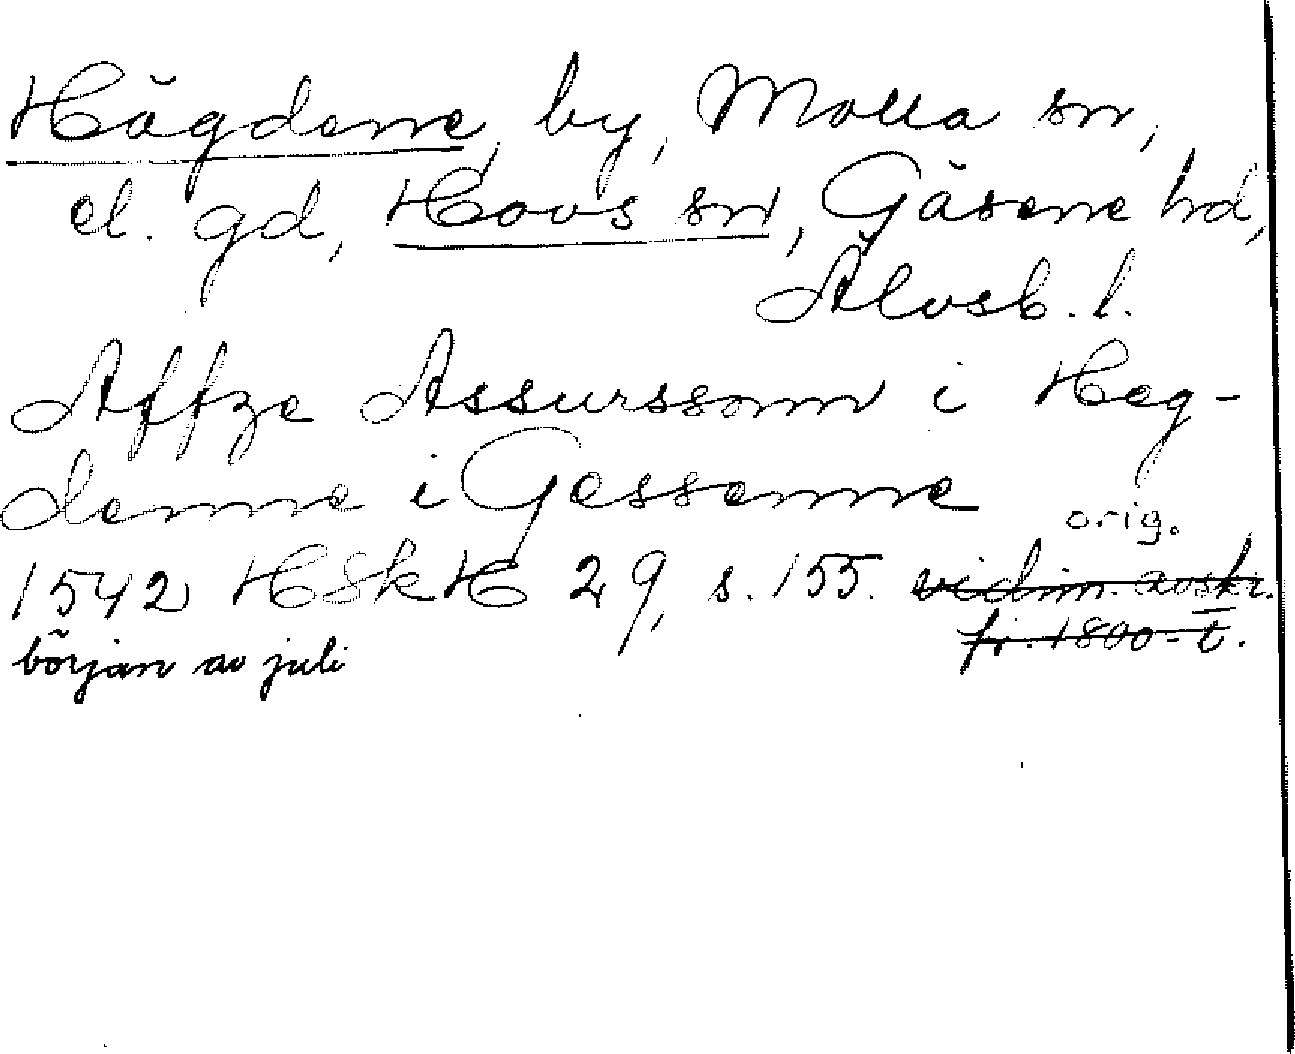 Hägdene, by, Molla sn,
el. gd, Hovs sn, Gäsene hd,
Älvsb. l.
Affze Assurssonn i Heg-
denne i Gessenne
orig.
1542 HSkH 29, s. 155. vidim. avskr.
början av juli fr. 1800-t.